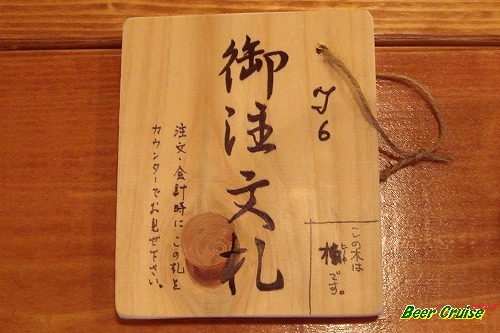 御注文札
J6
注文・会計時にこの札を
カウンターでお見せ下さい。
この木は
です。
Beer Cruise